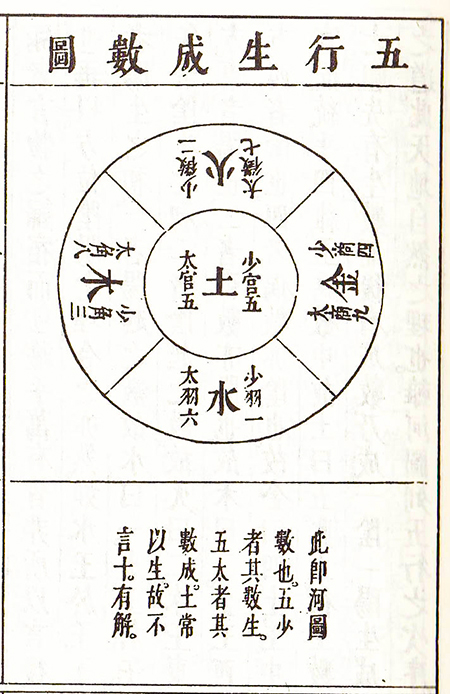 五行生成數圖
太徵七
火
少徵二
少商四
金
太商九
少宮五
土
太宮五
太角八
木
少角三
少羽一
水
太羽六
此即河圖
數也。五少
者其數生。
五太者其
數成。土常
以生。故不
言十。有解。